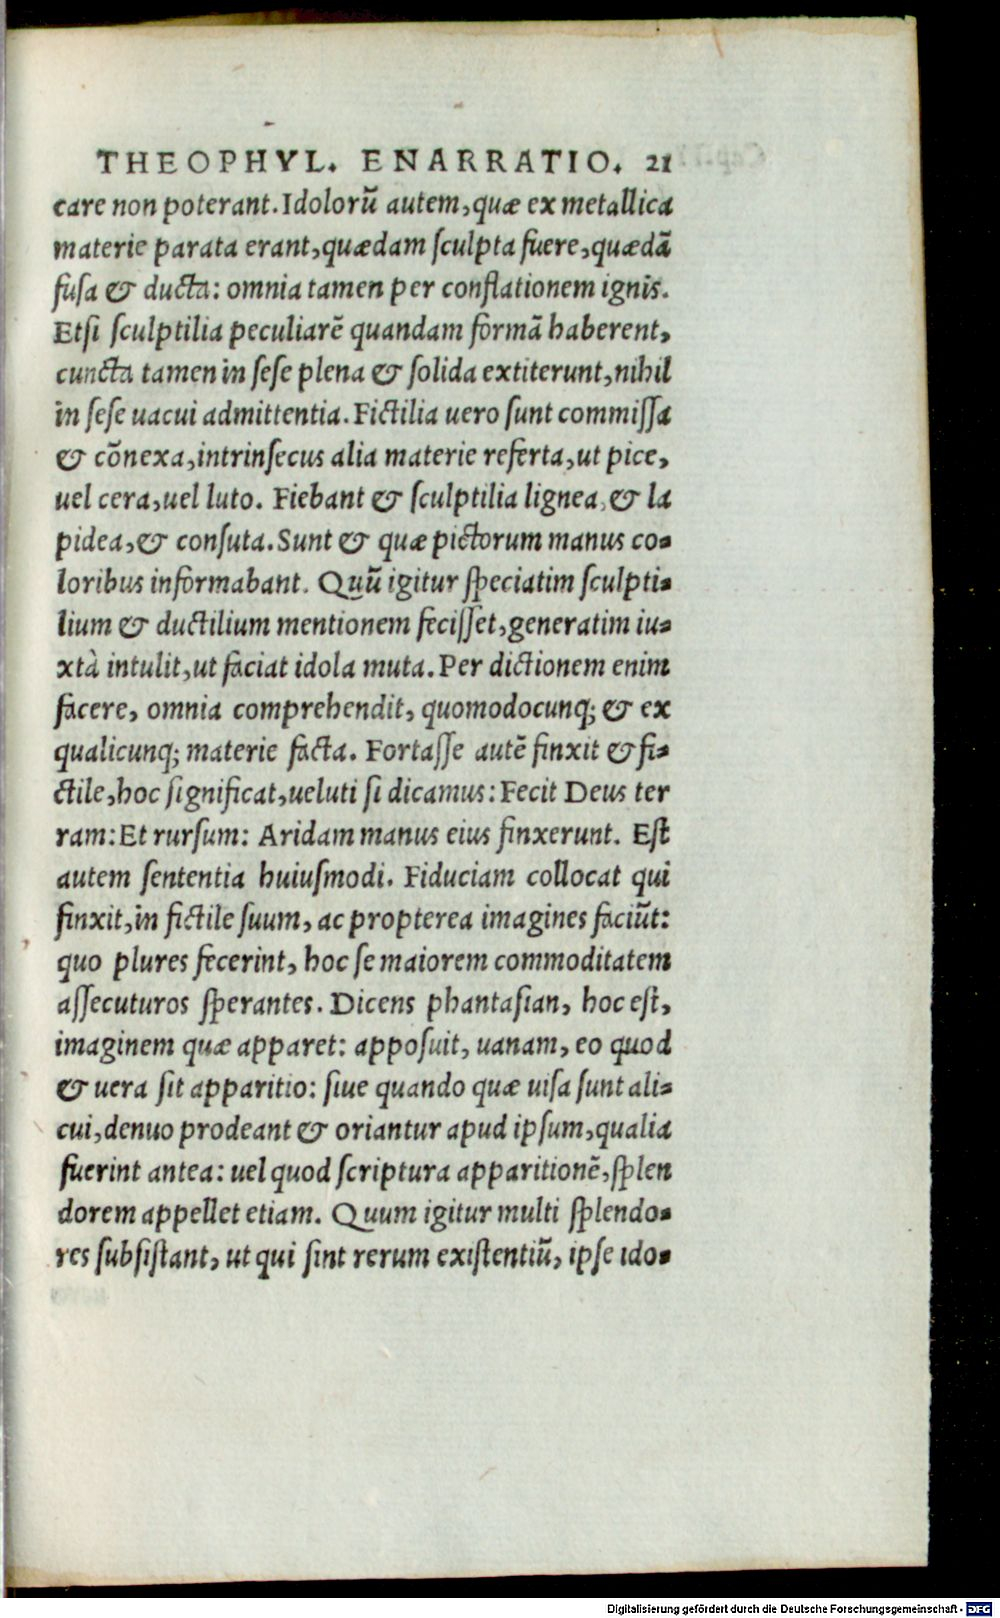 THEOPHYL. ENARRATIO. 21
care non poterant. Idolorũ autem, quæ ex metallica
materie parata erant, quædam ſculpta fuere, quædã
fuſa & ducta: omnia tamen per conflationem ignis.
Etſi ſculptilia peculiarẽ quandam formã haberent,
cuncta tamen in ſeſe plena & ſolida extiterunt, nihil
in ſeſe uacui admittentia. Fictilia uero ſunt commiſſa
& cõnexa, intrinſecus alia materie referta, ut pice,
uel cera, uel luto. Fiebant & ſculptilia lignea, & la
pidea, & conſuta. Sunt & quæ pictorum manus co-
loribus informabant. Quũ igitur ſpeciatim ſculpti-
lium & ductilium mentionem feciſſet, generatim iu-
xtà intulit, ut faciat idola muta. Per dictionem enim
facere, omnia comprehendit, quomodocunq; & ex
qualicunq; materie facta. Fortaſſe autẽ finxit & fi-
ctile, hoc ſignificat, ueluti ſi dicamus: Fecit Deus ter
ram: Et rurſum: Aridam manus eius finxerunt. Eſt
autem ſententia huiuſmodi. Fiduciam collocat qui
finxit, in fictile ſuum, ac propterea imagines faciũt:
quo plures fecerint, hoc ſe maiorem commoditatem
aſſecuturos ſperantes. Dicens phantaſian, hoc eſt,
imaginem quæ apparet: appoſuit, uanam, eo quod
& uera ſit apparitio: ſiue quando quæ uiſa ſunt ali-
cui, denuo prodeant & oriantur apud ipſum, qualia
fuerint antea: uel quod ſcriptura apparitionẽ, ſplen
dorem appellet etiam. Quum igitur multi ſplendo-
res ſubſiſtant, ut qui ſint rerum exiſtentiũ, ipſe ido-
Digitalisierung gefördert durch die Deutsche Forschungsgemeinschaft - DFG